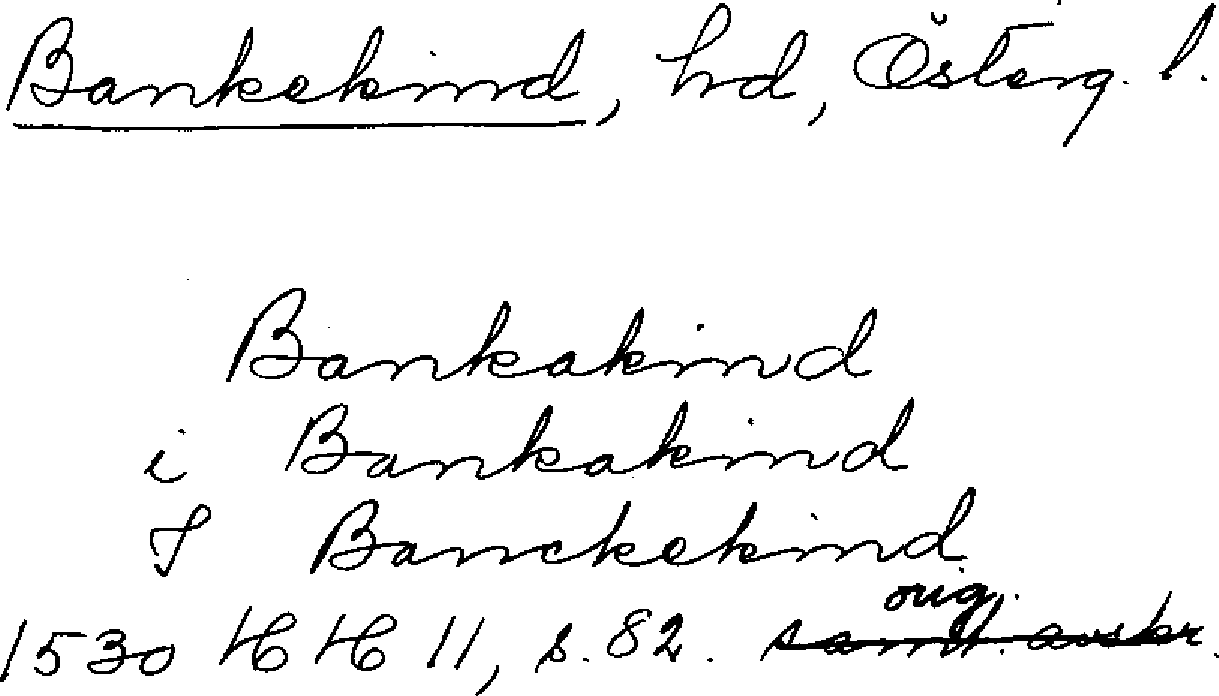 Bankekind, hd, Österg. l.
Bankakind
i Bankakind
J Banckekind
orig.
1530 HH 11, s. 82. samt. avskr.